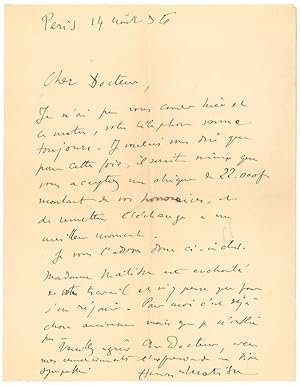 Paris 14 août 36
Cher Docteur,
Je n'ai pu vous causer hier et
ce matin, votre téléphone sonne
toujours. Je voulais vous dire que
pour cette fois, il serait mieux que
vous acceptiez un chèque de 22.000f
montant de vos honoraires, et
de remettre l'échange à un
meilleur moment.
Je vous l'adresse donc ci-inclus.
Madame Matisse est enchantée
de votre travail et n'y pense que pour
s'en réjouir. Pour moi c'est déjà
chose ancienne mais que je n'oublie
pas.
Veuillez agréer Cher Docteur, avec
mes remerciements l'expression de ma
sympathie
Henri Matisse